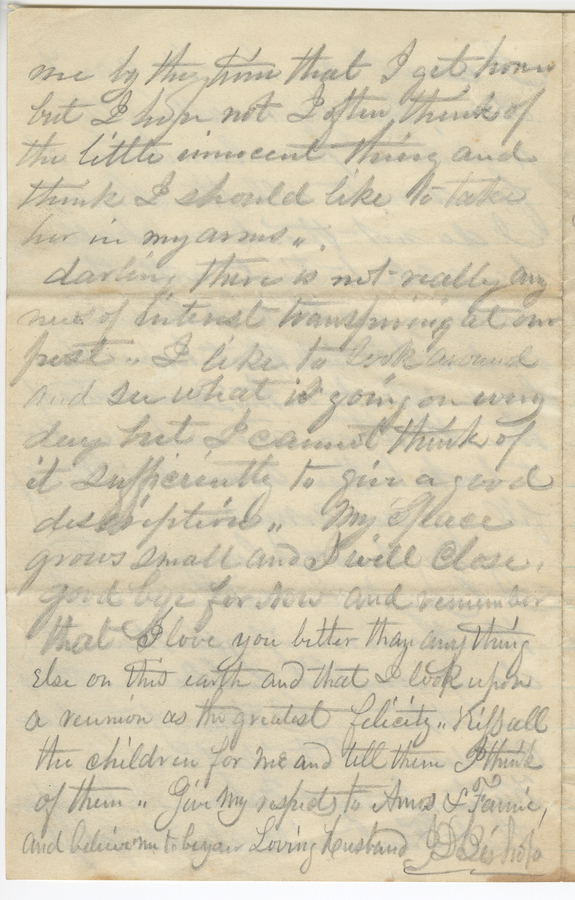 me by the time that I get home
but I hope not I often think of
the little innocent thing and
think I should like to take
her in my arms.
darling there is not really any
news of interest transpiring at our
post. I like to look around
and see what is going on every
day but I cannot think of
it sufficiently to give a good
description. My Space
grows small and I will Close.
good bye for now and remember
that I love you better than any thing
Else on this earth and that I look upon
a reunion as the greatest felicity. Kiss all
the children for me and tell them I think
of them. Give My respects to Amos & Fannie,
and believe me to be your Loving husband J D Bishop